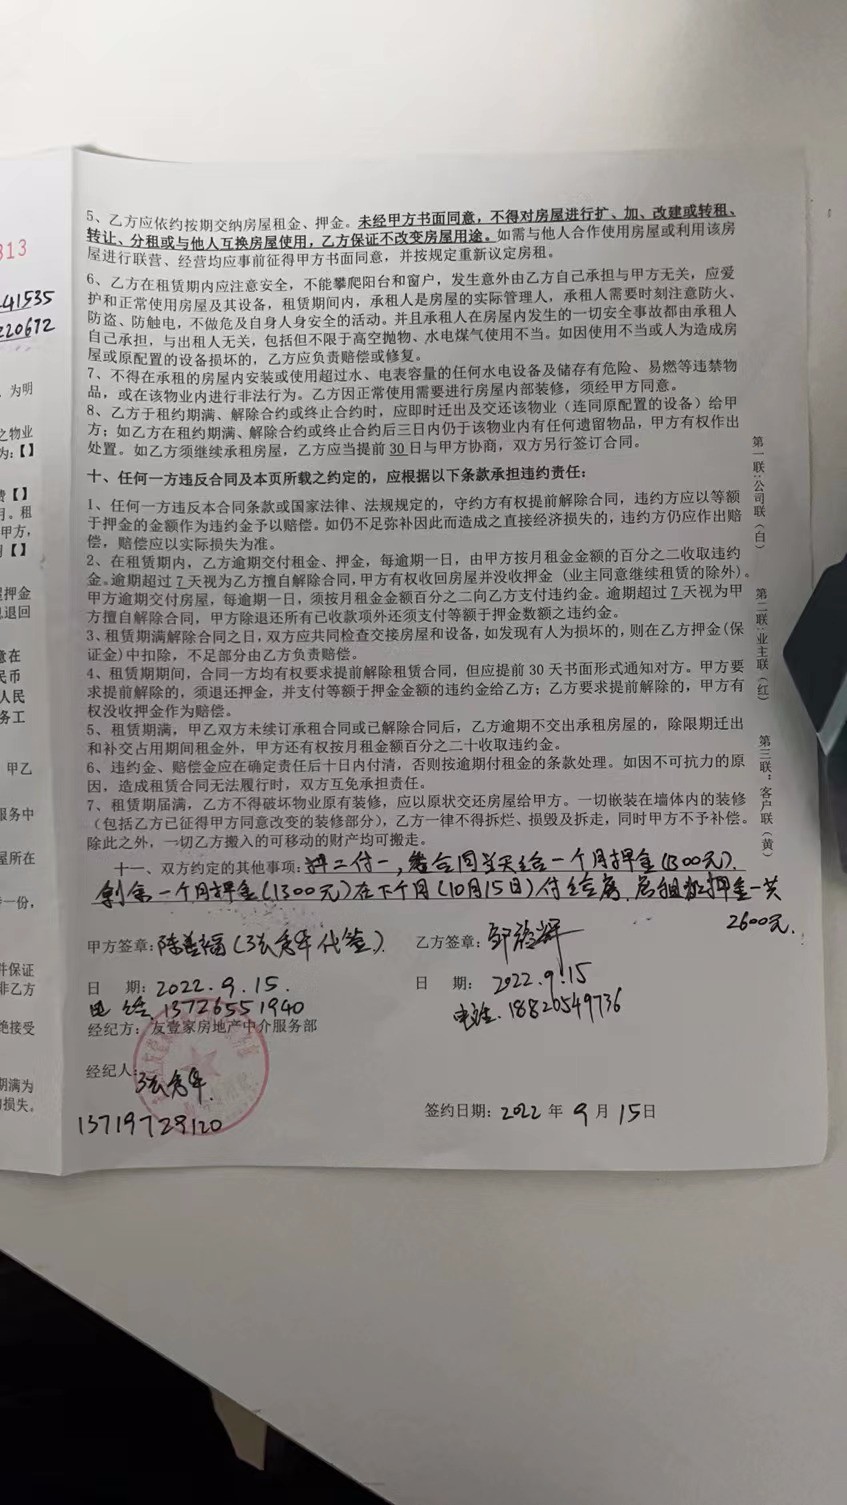 313
41535
220672
、为明
之物业
为:【】
费【】
月。租
甲方,
【】
押金
退回
意在
民币
人民
务工
甲乙
服务中
屋所在
一份,
件保证
非乙方
绝接受
期满为
损失。
5、乙方应依约按期交纳房屋租金、押金。未经甲方书面同意,不得对房屋进行扩、加、改建或转租、
转让、分租或与他人互换房屋使用,乙方保证不改变房屋用途。如需与他人合作使用房屋或利用该房
屋进行联营、经营均应事前征得甲方书面同意,并按规定重新议定房租。
6、乙方在租赁期内应注意安全,不能攀爬阳台和窗户,发生意外由乙方自己承担与甲方无关,应爱
护和正常使用房屋及其设备,租赁期间内,承租人是房屋的实际管理人,承租人需要时刻注意防火、
防盗、防触电,不做危及自身人身安全的活动。并且承租人在房屋内发生的一切安全事故都由承租人
自己承担,与出租人无关,包括但不限于高空抛物、水电煤气使用不当。如因使用不当或人为造成房
屋或原配置的设备损坏的,乙方应负责赔偿或修复。
7、不得在承租的房屋内安装或使用超过水、电表容量的任何水电设备及储存有危险、易燃等违禁物
品,或在该物业内进行非法行为。乙方因正常使用需要进行房屋内部装修,须经甲方同意。
8、乙方于租约期满、解除合约或终止合约时,应即时迁出及交还该物业(连同原配置的设备)给甲
方;如乙方在租约期满、解除合约或终止合约后三日内仍于该物业内有任何遗留物品,甲方有权作出
处置。如乙方须继续承租房屋,乙方应当提前30日与甲方协商,双方另行签订合同。
十、任何一方违反合同及本页所载之约定的,应根据以下条款承担违约责任:
1、任何一方违反本合同条款或国家法律、法规规定的,守约方有权提前解除合同,违约方应以等额
于押金的金额作为违约金予以赔偿。如仍不足弥补因此而造成之直接经济损失的,违约方仍应作出赔
偿,赔偿应以实际损失为准。
2、在租赁期内,乙方逾期交付租金、押金,每逾期一日,由甲方按月租金金额的百分之二收取违约
金。逾期超过7天视为乙方擅自解除合同,甲方有权收回房屋并没收押金(业主同意继续租赁的除外)。
甲方逾期交付房屋,每逾期一日,须按月租金金额百分之二向乙方支付违约金。逾期超过7天视为甲
方擅自解除合同,甲方除退还所有已收款项外还须支付等额于押金数额之违约金。
3、租赁期满解除合同之日,双方应共同检查交接房屋和设备,如发现有人为损坏的,则在乙方押金(保
证金)中扣除,不足部分由乙方负责赔偿。
4、租赁期期间,合同一方均有权要求提前解除租赁合同,但应提前30天书面形式通知对方。甲方要
求提前解除的,须退还押金,并支付等额于押金金额的违约金给乙方;乙方要求提前解除的,甲方有
权没收押金作为赔偿。
5、租赁期满,甲乙双方未续订承租合同或已解除合同后,乙方逾期不交出承租房屋的,除限期迁出
和补交占用期间租金外,甲方还有权按月租金额百分之二十收取违约金。
6、违约金、赔偿金应在确定责任后十日内付清,否则按逾期付租金的条款处理。如因不可抗力的原
因,造成租赁合同无法履行时,双方互免承担责任。
7、租赁期届满,乙方不得破坏物业原有装修,应以原状交还房屋给甲方。一切嵌装在墙体内的装修
(包括乙方已征得甲方同意改变的装修部分),乙方一律不得拆烂、损毁及拆走,同时甲方不予补偿。
除此之外,一切乙方搬入的可移动的财产均可搬走。
十一、双方约定的其他事项:押二付一,签合同当天给一个月押金(1300元).
剩余一个月押金(1300元)在下个月(10月15日)付给房.房租和押金一共
2600元.
甲方签章:陈善福(张秀年代签).
乙方签章:邹
日 期:2022.9.15.
日 期:2022.9.15
电话.13726551940
电话.18820549736
经纪方:友壹家房地产中介服务部
经纪人:张秀年.
13719729120
签约日期:2022年9月15日
第一联:公司联(白)
第二联:业主联(红)
第三联:客户联(黄)